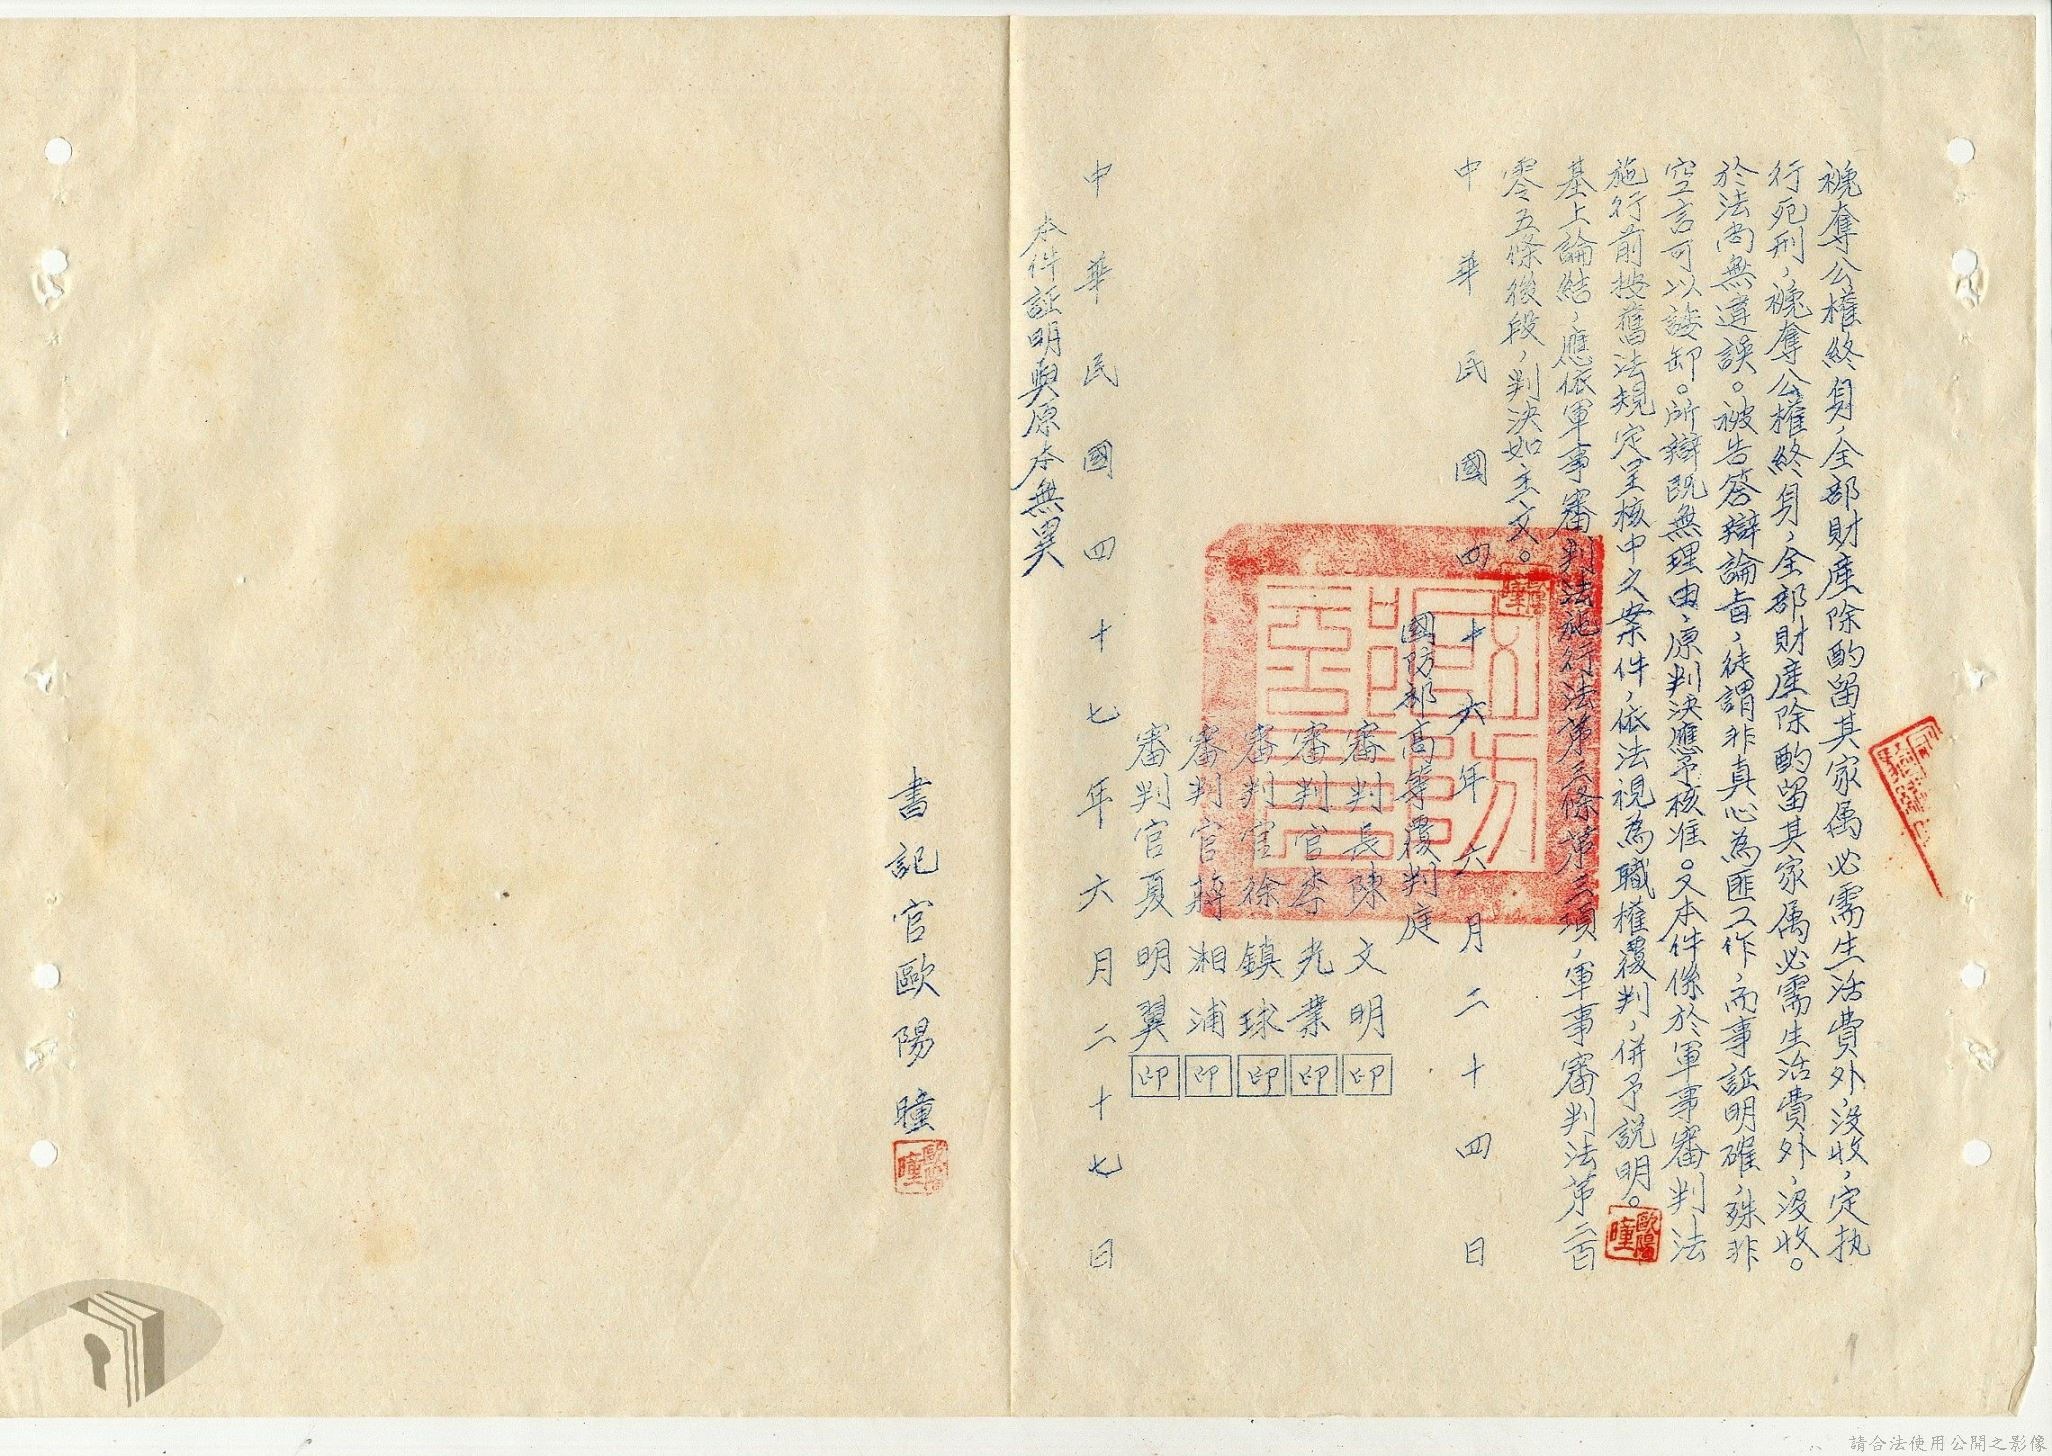 褫奪公權終身，全部財產除酌留其家屬必需生活費外，沒收，定执
行死刑，褫奪公權終身，全部財產除酌留其家屬必需生活費外，沒收。
於法尚無違誤。被告答辯論旨，徒謂非真心為匪工作，而事証明確，殊非
空言可以諉卸。所辯既無理由，原判決應予核准。又本件係於軍事審判法
施行前按舊法規定呈核中之案件，依法視為職權覆判，併予説明。
基上論結，應依軍事審判法施行法第三條第三項，軍事審判法第二百
零五條後段，判決如主文。
中華民國四十六年六月二十四日
國防部高等覆判庭
審判長陳文明印
審判官李光業印
審判官徐鎮球印
審判官蔣湘浦印
審判官夏明翼印
中華民國四十七年六月二十七日
本件証明與原本無異
書記官歐陽瞳
歐陽瞳
請合法使用公開之影像